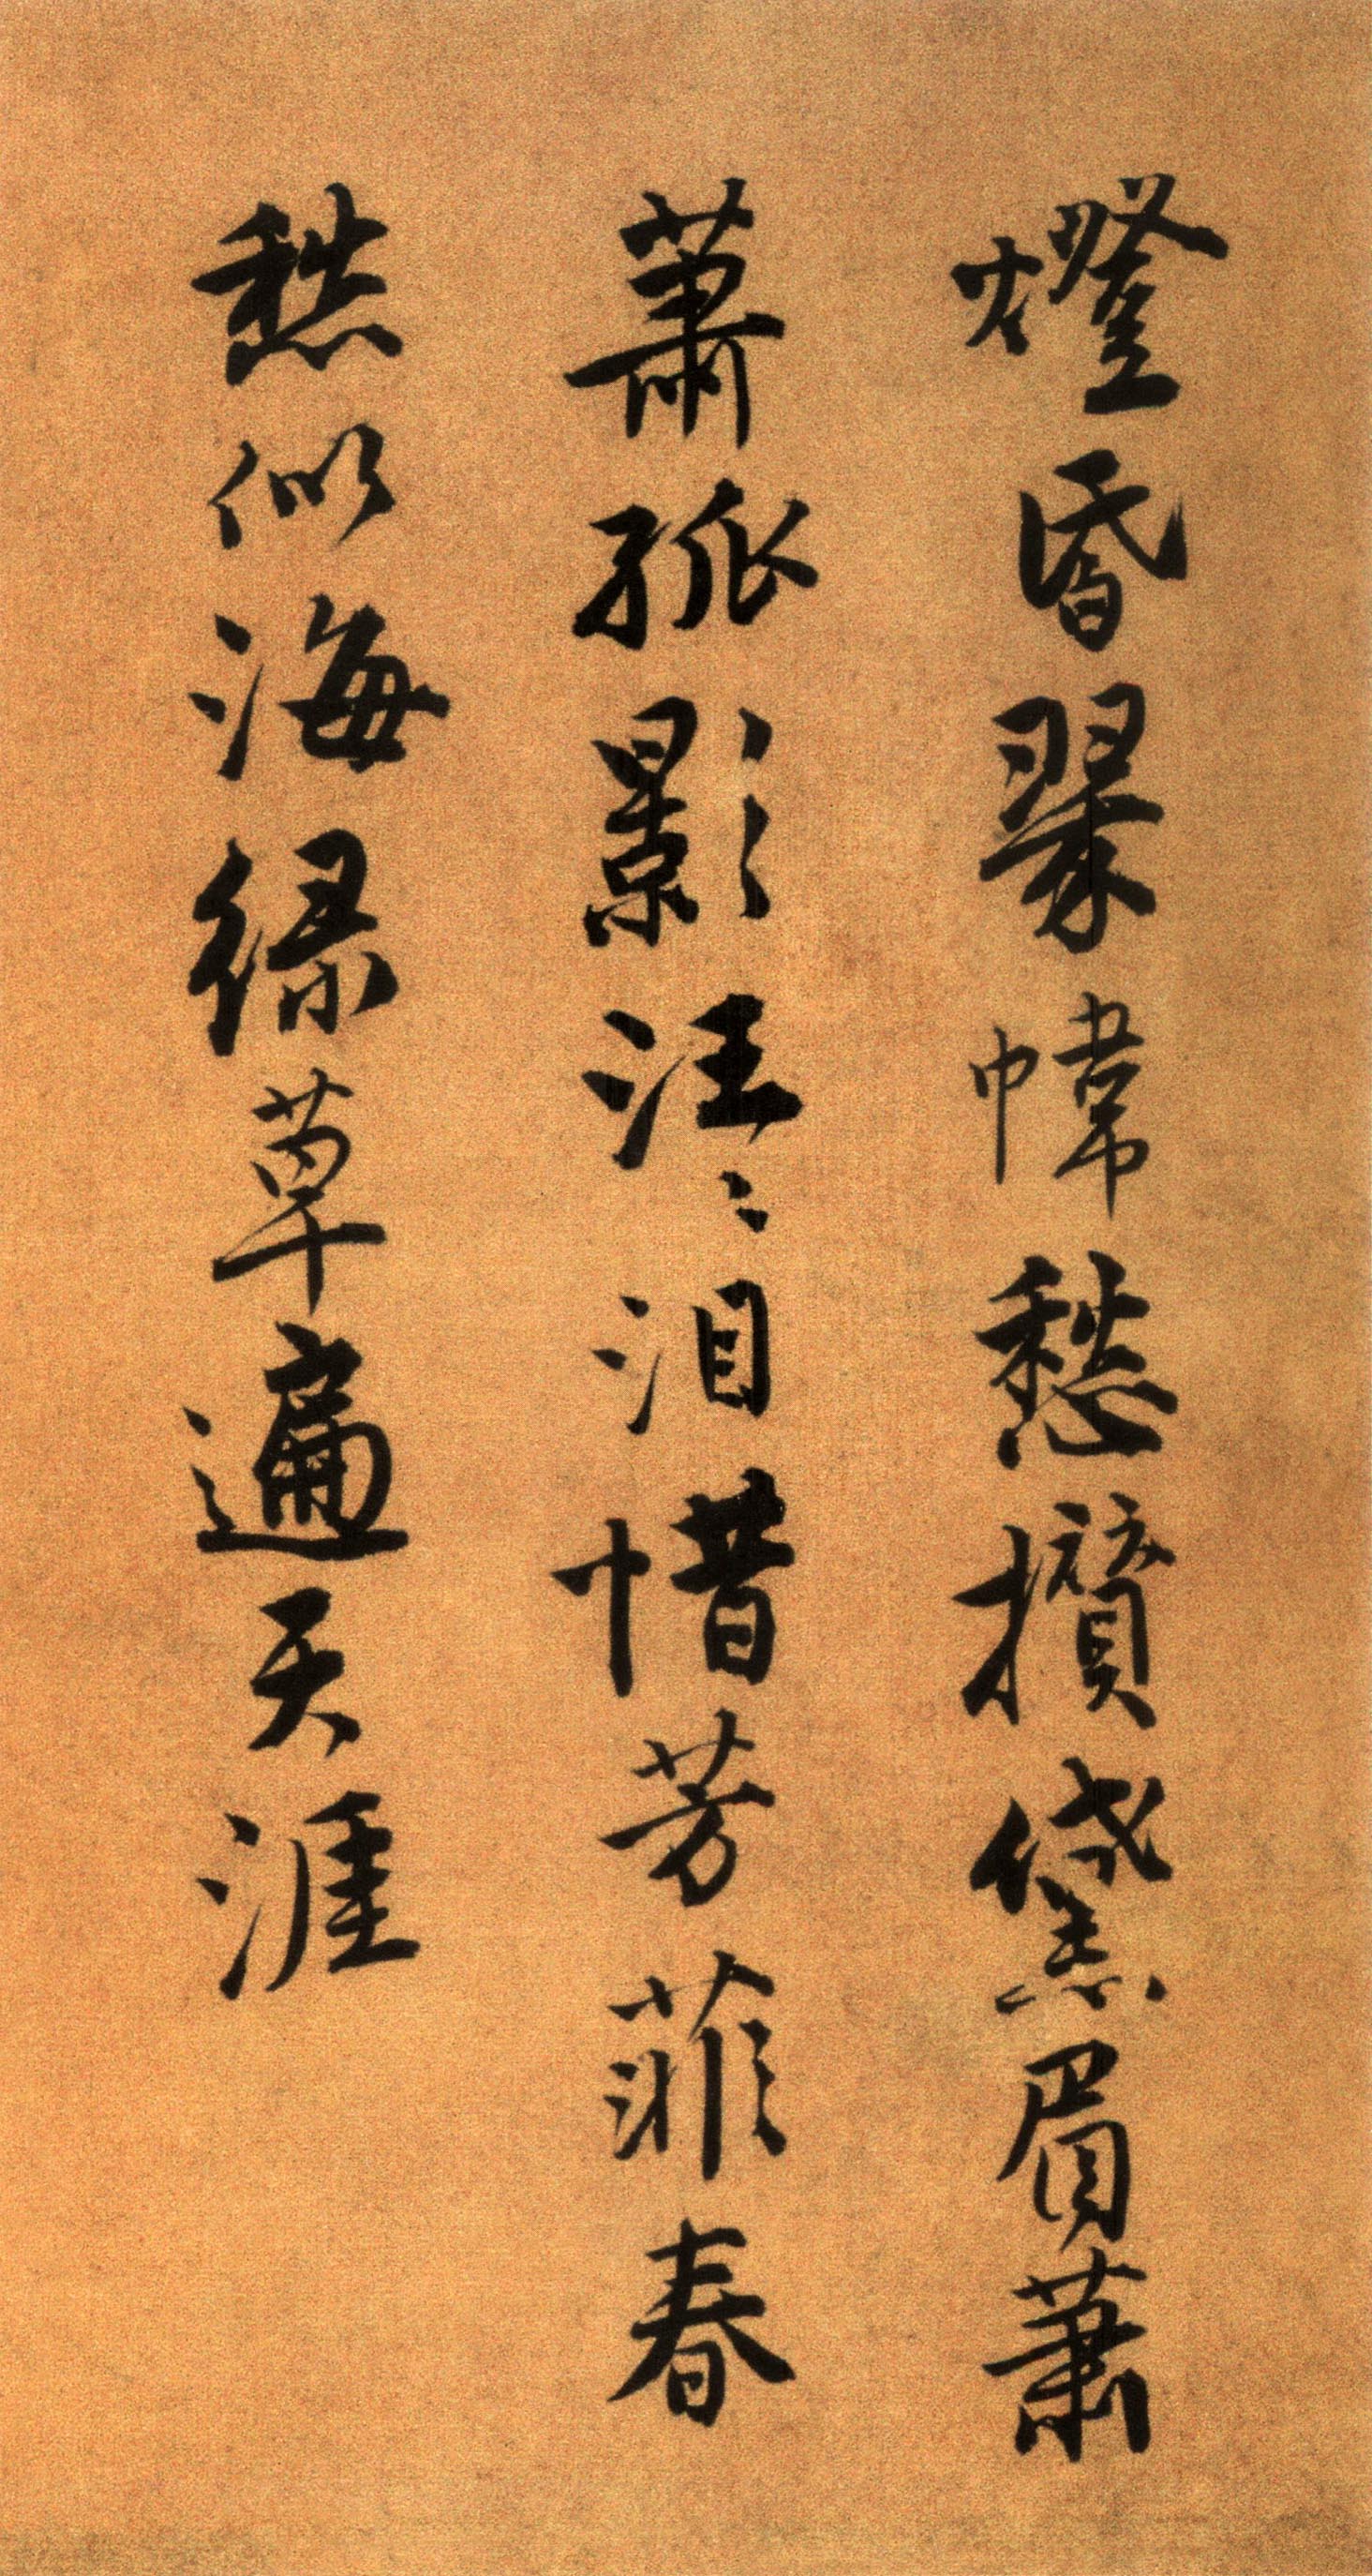 燈昏翠幃愁攢黛眉蕭
蕭孤影汪〻泪惜芳菲春
愁似海緑草遍天涯